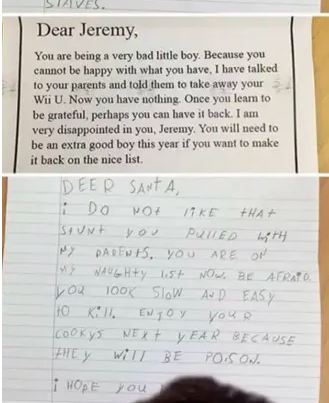 SLAVES.
Dear Jeremy,
You are being a very bad little boy. Because you
cannot be happy with what you have, I have talked
to your parents and told them to take away your
Wii U. Now you have nothing. Once you learn to
be grateful, perhaps you can have it back. I am
very disappointed in you, Jeremy. You will need to
be an extra good boy this year if you want to make
it back on the nice list.
DEER SANTA,
i DO NOT liKE tHAt
StUNt YOU PUllED WitH
MY PARENTS. YOU ARE ON
MY NAUGHTY liSt NOW. BE AFRAID.
YOU lOOK SlOW AND EASY
tO Kill. ENJOY YOUR
COOKYS NEXt YEAR BECAUSE
tHEY Will BE POISON.
i HOPE YOU